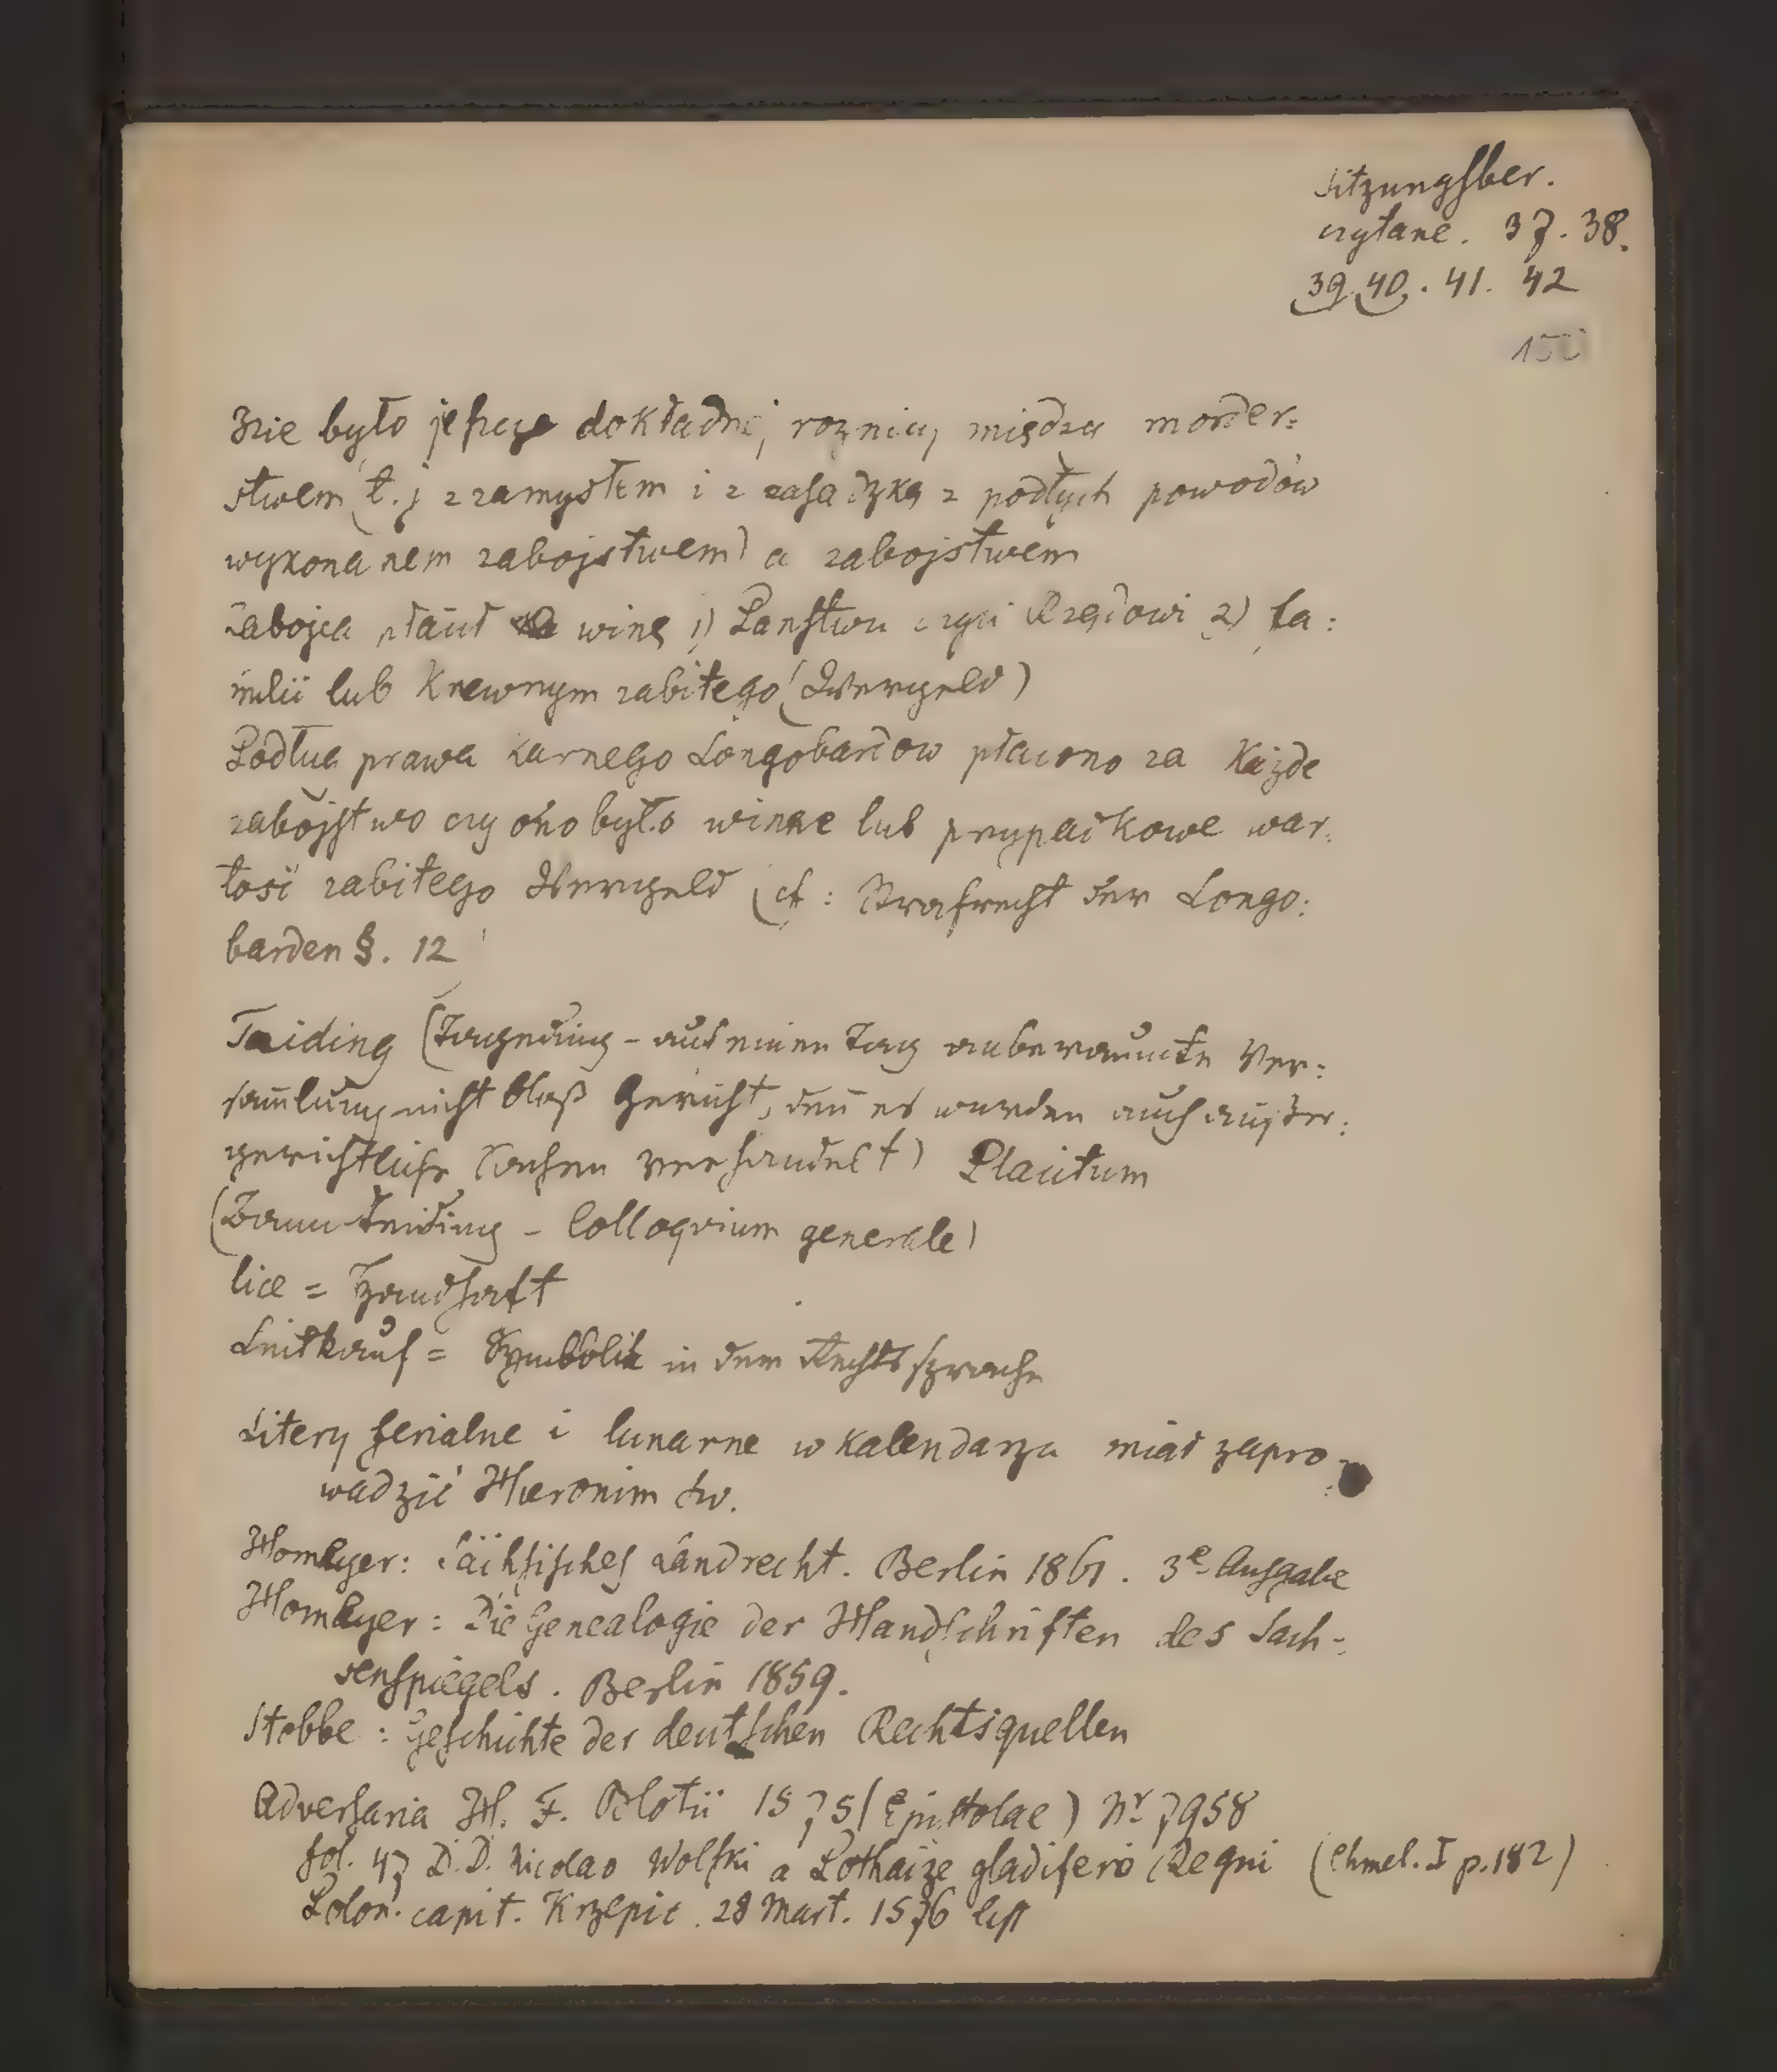 Sitzungsber.
czytane. 37. 38.
39. 40. 41. 42
150
Nie było jeszcze dokładnéj roznicy między morder=
stwem (t. j z zamysłem i z zasadzką z podłych powodów
wykonanem zabojstwem) a zabojstwem
Zabojca płacił winę 1) Panstwu czyli Rządowi 2) fa=
milii lub Krewnym zabitego (Wergeld)
Podług prawa karnego Longobardow płacono za Każde
zabójstwo czy ono było winne lub przypadkowe war=
tość zabitego Wergeld (cf: Strafrecht der Longo=
barden §. 12
Taiding (Tageding – auf einen Tag anberaumte Ver=
samlung nicht bloß Gericht, den es wurden auch außer=
gerichtliche Sachen verhandelt) Placitum
(Banntaiding – Colloquium generale)
lice = Handhaft
Leitkauf = Symbolik in dem Rechtssprache
Litery ferialne i lunarne w Kalendarzu miał zapro
wadzić Hieronim Sw.
Homeyer: Sächsisches Landrecht. Berlin 1861. 3e Ausgabe
Homeyer: Die Genealogie der Handschriften des Sach-
senspiegels. Berlin 1859.
Stobbe: Geschichte der deutschen Rechtsquellen
Adversaria H. F. Blotii 1575 (Epistolae) Nr 7958
fol. 47 D. D. Nicolao Wolski a Pothaize gladifero Regni (Chmel. I p. 182)
Polon. capit. Krzepic. 28 Mart. 1576 list